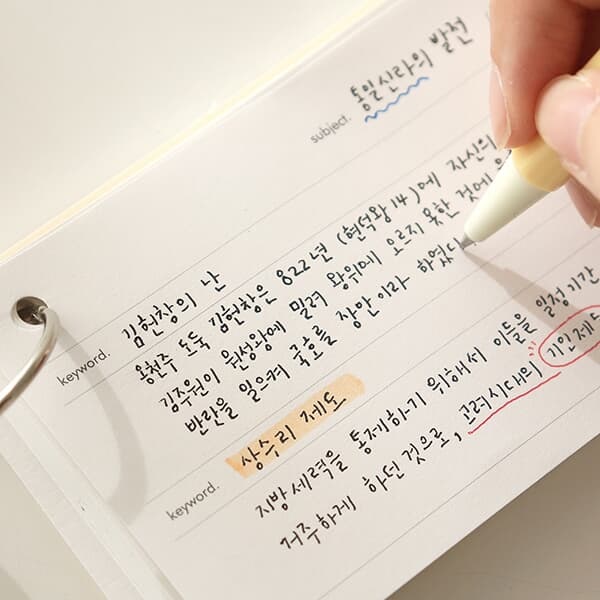 subject. 통일신라의 발전
keyword. 김헌창의 난
웅천주 도독 김헌창은 822년 (헌덕왕14)에 자신의
김주원이 원성왕에 밀려 왕위에 오르지 못한 것에
반란을 일으켜 국호를 장안이라 하였다
keyword. 상수리 제도
지방세력을 통제하기 위해서 이들을 일정기간
거주하게 하던 것으로, 고려시대의 기인제도